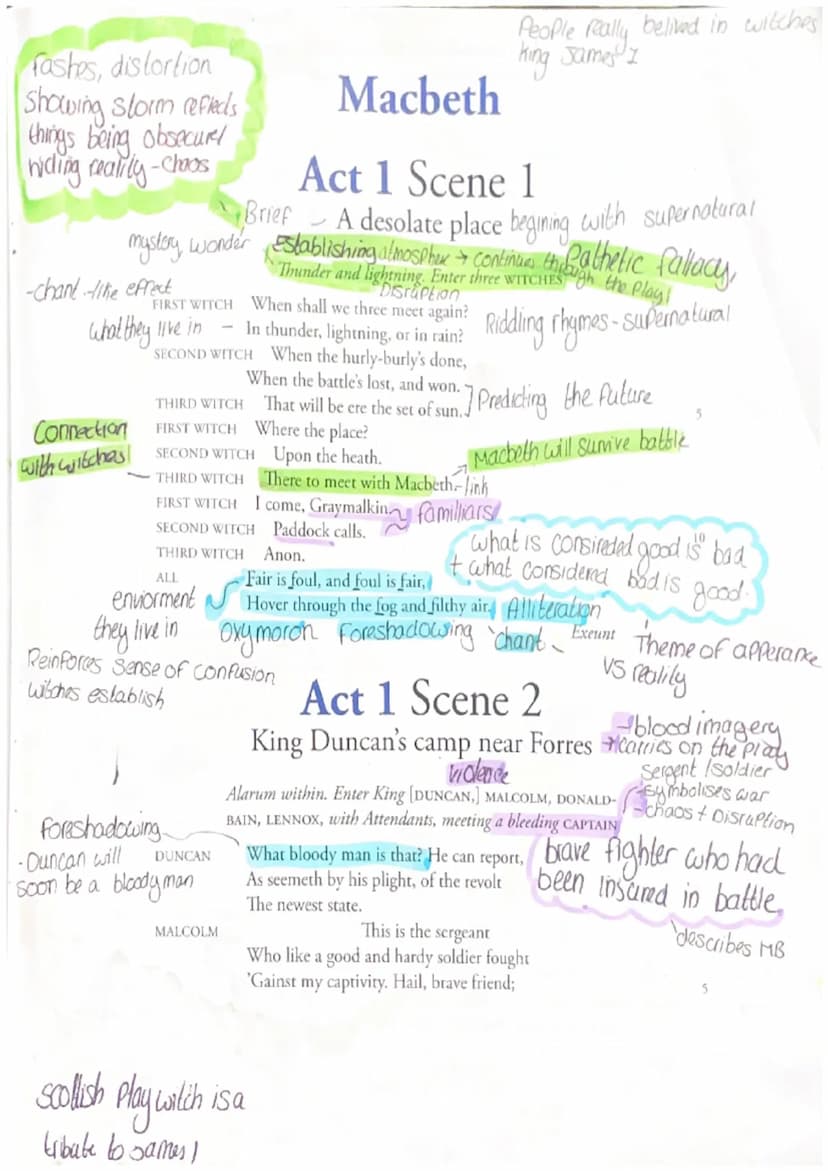 People really belived in witches
King James I
fashes, distortion
showing storm reflects
things being obscured
hiding reality - chaos
Macbeth
Act 1 Scene 1
Brief - A desolate place begining with supernatural
mystery, wonder
Establishing atmosphere → continues through the play!
Pathetic fallacy,
Thunder and lightning. Enter three WITCHES
-chant-like effect
DISRUPTION
FIRST WITCH When shall we three meet again?
what they live in - In thunder, lightning, or in rain?
Riddling rhymes - supernatural
SECOND WITCH When the hurly-burly's done,
When the battle's lost, and won.
Predicting the future
THIRD WITCH That will be ere the set of sun.
5
Connection
with witches!
FIRST WITCH Where the place?
SECOND WITCH Upon the heath.
Macbeth will survive battle
THIRD WITCH There to meet with Macbeth. - link
FIRST WITCH I come, Graymalkin.
familliars!
SECOND WITCH Paddock calls.
THIRD WITCH Anon.
10
what is consireded good is bad
+ what considered bad is good.
ALL Fair is foul, and foul is fair,
Hover through the fog and filthy air. Alliteration
enviorment
they live in
oxymoron foreshadowing 'chant
Exeunt
Theme of apperance
VS reality
Reinforces sense of confusion
witches establish
Act 1 Scene 2
King Duncan's camp near Forres
→blood imagery
→carries on the play
violence
Sergent /soldier
-symbolises war
-chaos + Disruption
Alarum within. Enter King [DUNCAN,] MALCOLM, DONALD-
BAIN, LENNOX, with Attendants, meeting a bleeding CAPTAIN
foreshadowing
-Duncan will
soon be a bloody man
DUNCAN What bloody man is that? He can report,
As seemeth by his plight, of the revolt
The newest state.
brave fighter who had
been insured in battle.
describes MB
MALCOLM This is the sergeant
Who like a good and hardy soldier fought
'Gainst my captivity. Hail, brave friend;
5
scottish play witch is a
tribute to James I